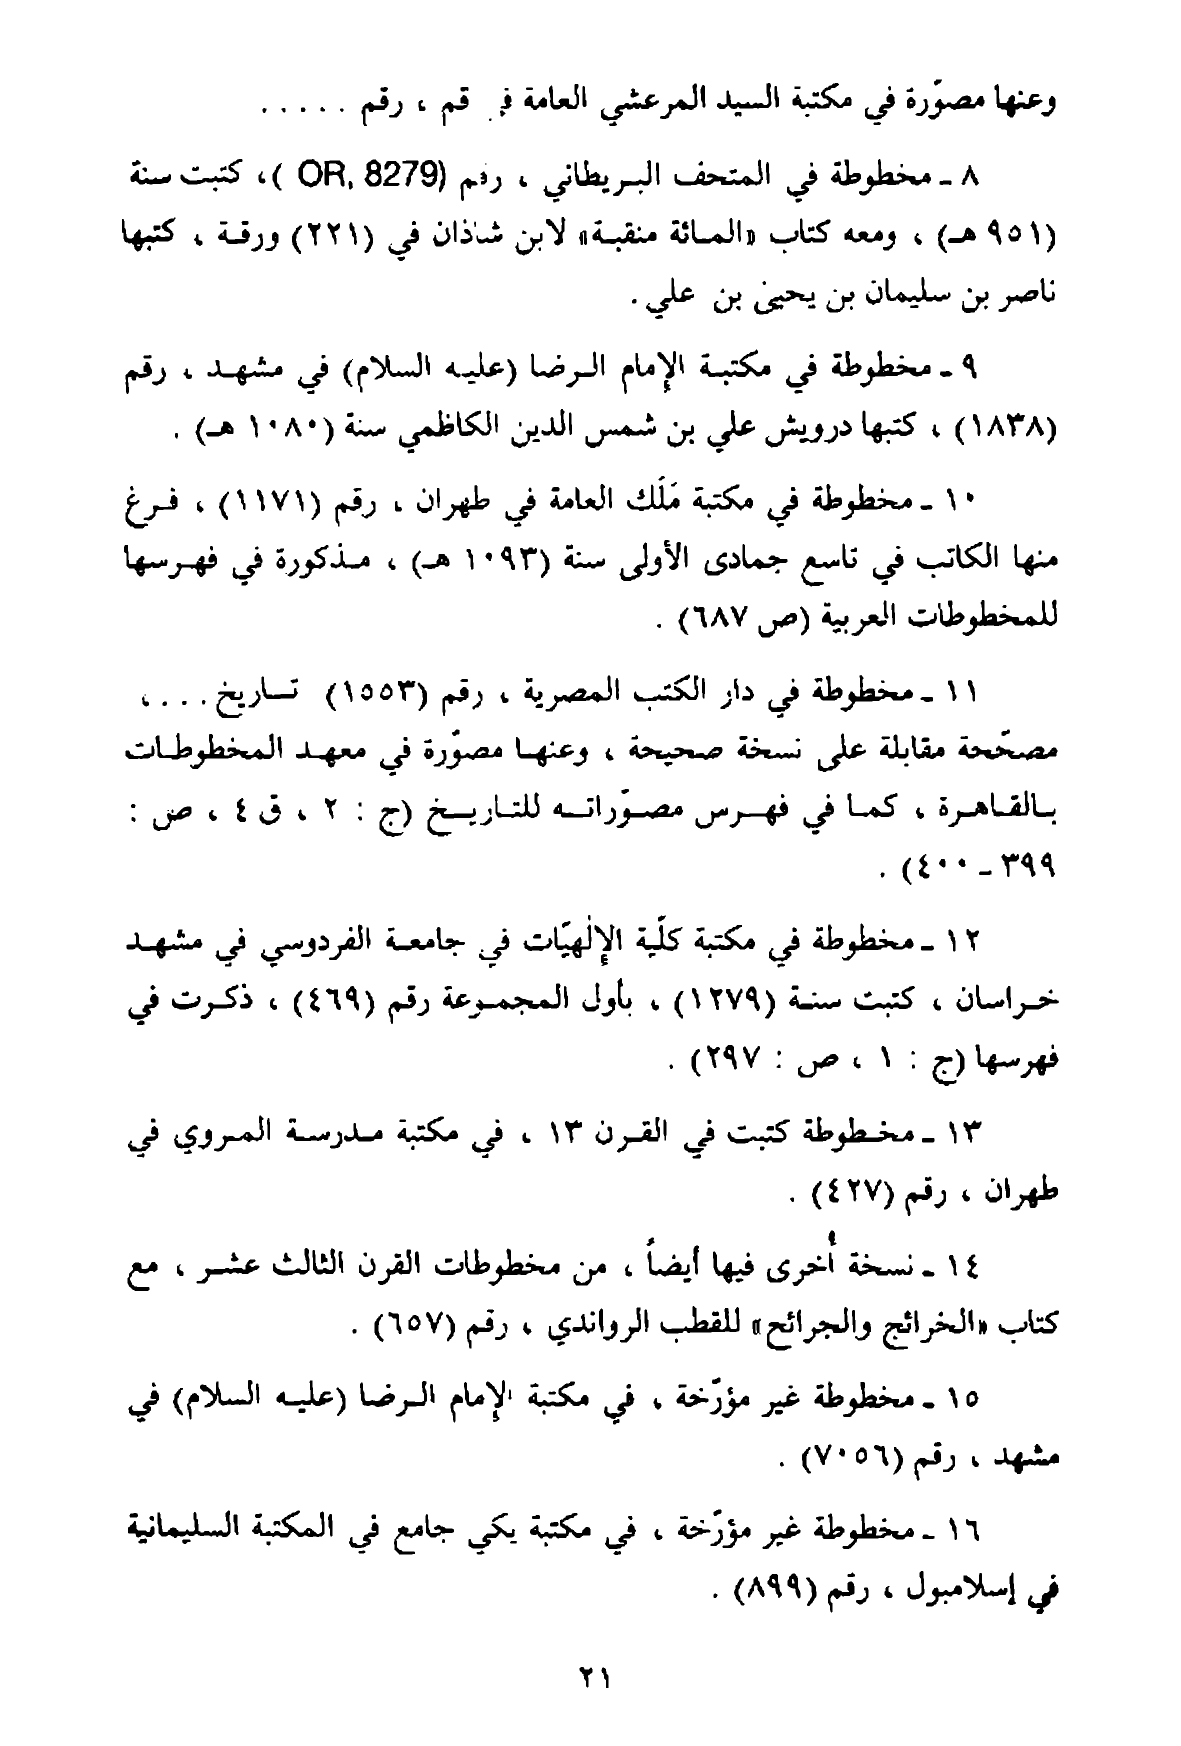 وعنها مصوّرة في مكتبة السيد المرعشي العامة في قم ، رقم . . . . .
٨ ـ مخطوطة في المتحف البريطاني ، رقم (OR, 8279 ) ، كتبت سنة
(٩٥١ هـ) ، ومعه كتاب «المائة منقبة» لابن شاذان في (٢٢١) ورقة ، كتبها
ناصر بن سليمان بن يحيىٰ بن علي .
٩ ـ مخطوطة في مكتبة الإمام الرضا (عليه السلام) في مشهد ، رقم
(١٨٣٨) ، كتبها درويش علي بن شمس الدين الكاظمي سنة (١٠٨٠ هـ) .
١٠ ـ مخطوطة في مكتبة مَلَك العامة في طهران ، رقم (١١٧١) ، فرغ
منها الكاتب في تاسع جمادى الأولى سنة (١٠٩٣ هـ) ، مذكورة في فهرسها
للمخطوطات العربية (ص ٦٨٧) .
١١ ـ مخطوطة في دار الكتب المصرية ، رقم (١٥٥٣) تاريخ . . . ،
مصحّحة مقابلة على نسخة صحيحة ، وعنها مصوّرة في معهد المخطوطات
بالقاهرة ، كما في فهرس مصوّراته للتاريخ (ج : ٢ ، ق ٤ ، ص :
٣٩٩ ـ ٤٠٠) .
١٢ ـ مخطوطة في مكتبة كلّية الإلٰهيّات في جامعة الفردوسي في مشهد
خراسان ، كتبت سنة (١٢٧٩) ، بأول المجموعة رقم (٤٦٩) ، ذكرت في
فهرسها (ج : ١ ، ص : ٢٩٧) .
١٣ ـ مخطوطة كتبت في القرن ١٣ ، في مكتبة مدرسة المروي في
طهران ، رقم (٤٢٧) .
١٤ ـ نسخة أُخرى فيها أيضاً ، من مخطوطات القرن الثالث عشر ، مع
كتاب «الخرائج والجرائح» للقطب الرواندي ، رقم (٦٥٧) .
١٥ ـ مخطوطة غير مؤرّخة ، في مكتبة الإمام الرضا (عليه السلام) في
مشهد ، رقم (٧٠٥٦) .
١٦ ـ مخطوطة غير مؤرّخة ، في مكتبة يكي جامع في المكتبة السليمانية
في إسلامبول ، رقم (٨٩٩) .
٢١